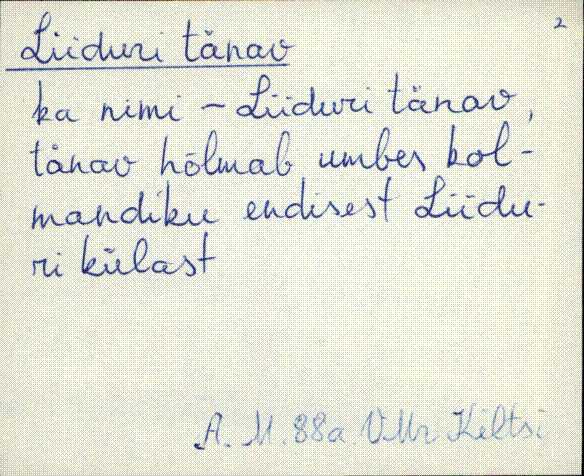 2
Liiduri tänav
ka nimi - Liiduri tänav,
tänav hõlmab umbes kol-
mandiku endisest Liidu-
ri külast
A. M. 88a VMr Kiltsi